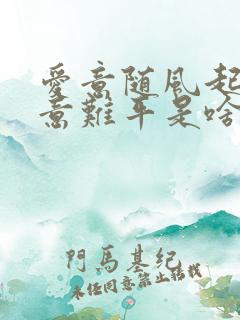 愛意随風起
意難平是啥
門馬基紀
未经同意禁止转载